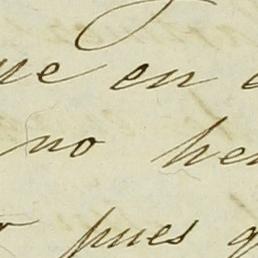 ue en
no he
pues q